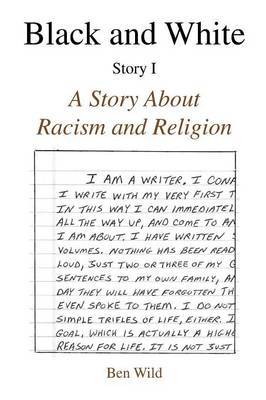 Black and White
Story I
A Story About
Racism and Religion
I AM A WRITER. I CONA
I WRITE WITH MY VERY FIRST T
IN THIS WAY I CAN IMMEDIATEL
ALL THE WAY UP, AND COME TO AN
I AM ABOUT. I HAVE WRITTEN
VOLUMES. NOTHING HAS BEEN READ
LOUD, JUST TWO OR THREE OF MY G
SENTENCES TO MY OWN FAMILY, A
DAY THEY WILL HAVE FORGOTTEN
EVEN SPOKE TO THEM. I DO NOT
SIMPLE TRIFLES OF LIFE, EITHER. I
GOAL, WHICH IS ACTUALLY A HIGHE
REASON FOR LIFE. IT IS NOT JUST
Ben Wild